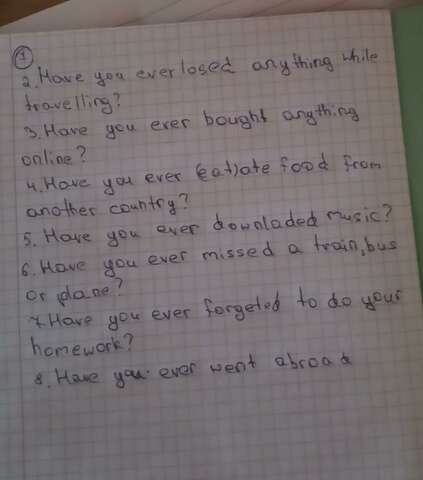 1
2. Have you ever losed anything while
travelling?
3. Have you ever bought anything
online?
4. Have you ever (eat)ate food from
another country?
5. Have you ever downladed music?
6. Have you ever missed a train, bus
or plane?
7. Have you ever forgeted to do your
homework?
8. Have you ever went abroad